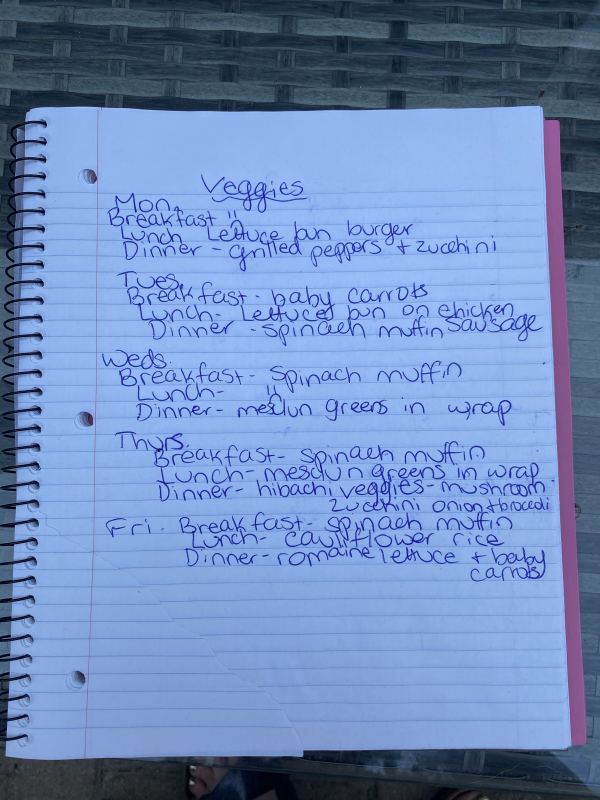 Veggies
Mon.
Breakfast "
Lunch Lettuce bun burger
Dinner - grilled peppers + zucchini
Tues.
Breakfast - baby carrots
Lunch - Lettuce bun on chicken
Dinner - spinach muffin sausage
Weds.
Breakfast - spinach muffin
Lunch - "
Dinner - mesclun greens in wrap
Thurs.
Breakfast - spinach muffin
Lunch - mesclun greens in wrap
Dinner - hibachi veggies - mushroom -
zucchini onion + brocolli
Fri. Breakfast - spinach muffin
Lunch - cauliflower rice
Dinner - romaine lettuce + baby
carrots